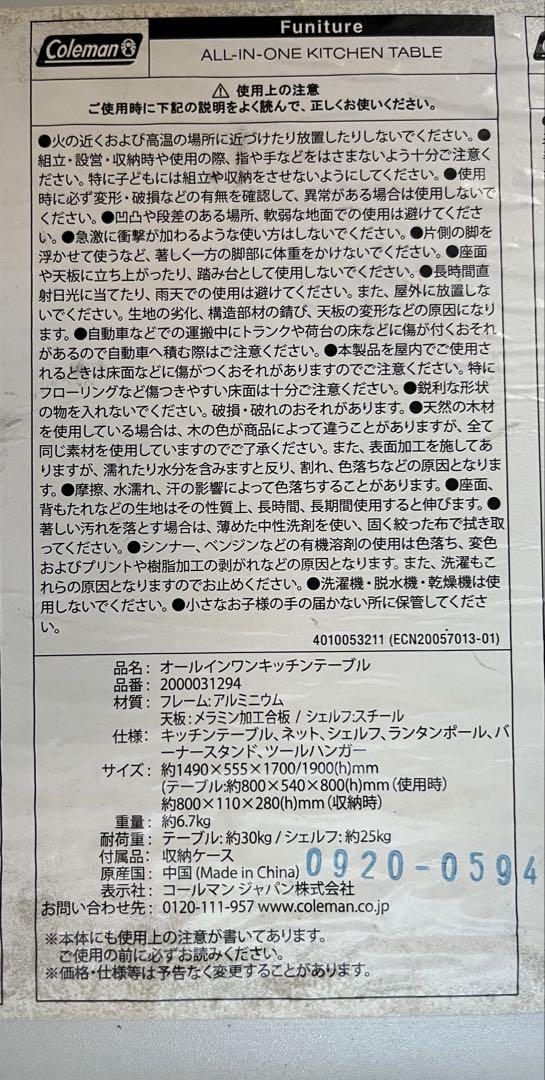 Coleman
Funiture
ALL-IN-ONE KITCHEN TABLE
⚠ 使用上の注意
ご使用時に下記の説明をよく読んで、正しくお使いください。
●火の近くおよび高温の場所に近づけたり放置したりしないでください。●
組立・設営・収納時や使用の際、指や手などをはさまないよう十分ご注意く
ださい。特に子どもには組立や収納をさせないようにしてください。●使用
時に必ず変形・破損などの有無を確認して、異常がある場合は使用しないで
ください。●凹凸や段差のある場所、軟弱な地面での使用は避けてくださ
い。●急激に衝撃が加わるような使い方はしないでください。●片側の脚を
浮かせて使うなど、著しく一方の脚部に体重をかけないでください。●座面
や天板に立ち上がったり、踏み台として使用しないでください。●長時間直
射日光に当てたり、雨天での使用は避けてください。また、屋外に放置しな
いでください。生地の劣化、構造部材の錆び、天板の変形などの原因になり
ます。●自動車などでの運搬中にトランクや荷台の床などに傷が付くおそれ
があるので自動車へ積む際はご注意ください。●本製品を屋内でご使用さ
れるときは床面などに傷がつくおそれがありますのでご注意ください。特に
フローリングなど傷つきやすい床面は十分ご注意ください。●鋭利な形状
の物を入れないでください。破損・破れのおそれがあります。●天然の木材
を使用している場合は、木の色が商品によって違うことがありますが、全て
同じ素材を使用していますのでご了承ください。また、表面加工を施してあ
りますが、濡れたり水分を含みますと反り、割れ、色落ちなどの原因となりま
す。●摩擦、水濡れ、汗の影響によって色落ちすることがあります。●座面、
背もたれなどの生地はその性質上、長時間、長期間使用すると伸びます。●
著しい汚れを落とす場合は、薄めた中性洗剤を使い、固く絞った布で拭き取
ってください。●シンナー、ベンジンなどの有機溶剤の使用は色落ち、変色
およびプリントや樹脂加工の剥がれなどの原因となります。また、洗濯もこ
れらの原因となりますのでお止めください。●洗濯機・脱水機・乾燥機は使
用しないでください。●小さなお子様の手の届かない所に保管してくださ
い。
4010053211 (ECN20057013-01)
品名：オールインワンキッチンテーブル
品番：2000031294
材質：フレーム:アルミニウム
天板:メラミン加工合板 / シェルフ:スチール
仕様：キッチンテーブル、ネット、シェルフ、ランタンポール、バ
ーナースタンド、ツールハンガー
サイズ：約1490×555×1700/1900(h)mm
(テーブル:約800×540×800(h)mm（使用時）
約800×110×280(h)mm（収納時）
重量：約6.7kg
耐荷重：テーブル:約30kg / シェルフ:約25kg
付属品：収納ケース
原産国：中国 (Made in China) 0920-0594
表示社：コールマン ジャパン株式会社
お問い合わせ先：0120-111-957 www.coleman.co.jp
※本体にも使用上の注意が書いてあります。
ご使用の前に必ずお読みください。
※価格・仕様等は予告なく変更することがあります。